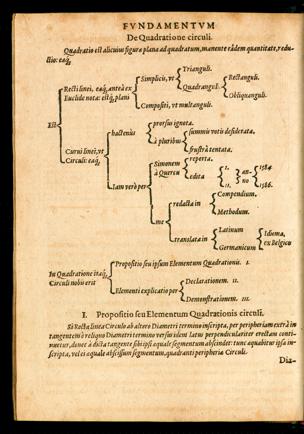 FVNDAMENTVM
De Quadratione circuli.
Quadratio est alicuius figuræ planæ ad quadratum, manente eâdem quantitate, redu-
ctio: eaq́;
Est
Recti linei, eaq́; antè à ex
Euclide nota: estq́; plani
Simplicis, vt
Trianguli.
Quadranguli.
Rectanguli.
Obliquanguli.
Compositi, vt multanguli.
Curui linei, vt
Circuli: eaq́;
hactenus
prorsus ignota.
à pluribus
summis votis desiderata.
frustrà tentata.
Iam verò per
Simonem
à Quercu
reperta.
edita
I.
II.
an-
no
1584.
1586.
me
redacta in
Compendium.
Methodum.
translata in
Latinum
Germanicum
Idioma,
ex Belgico
In Quadratione itaq́;
Circuli nobis erit
Propositio seu ipsum Elementum Quadrationis. I.
Elementi explicatio per
Declarationem. II.
Demonstrationem. III.
I. Propositio seu Elementum Quadrationis circuli.
Si Recta linea Circulo ab altero Diametri termino inscripta, per peripheriam extrà in
tangentem è reliquo Diametri termino versus idem latus perpendiculariter erectam conti-
nuetur, donec à dicta tangente sibi ipsi æquale segmentum abscindet: tunc æquabitur ipsa in-
scripta, vel ei æquale abscissum segmentum, quadranti peripheriæ Circuli.